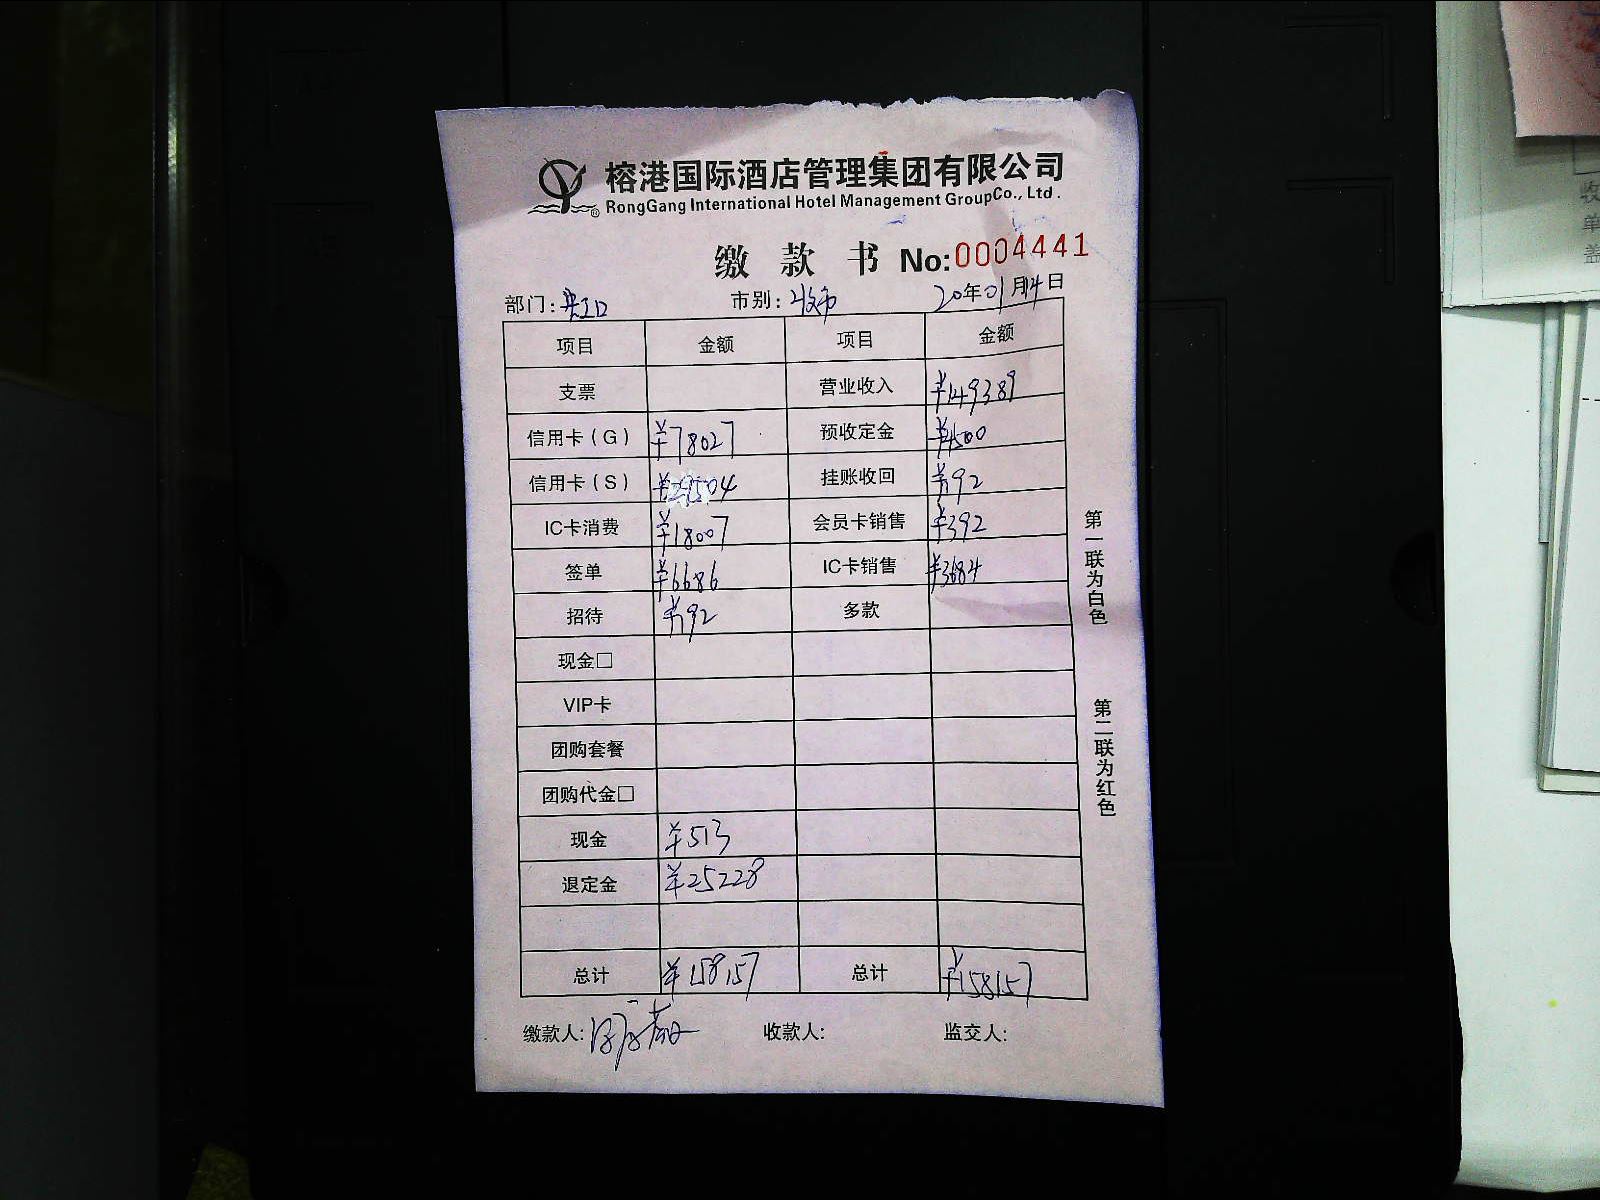 榕港国际酒店管理集团有限公司
RongGang International Hotel Management GroupCo., Ltd.
缴款书 No:0004441
部门:虹口 市别:收市 20年01月14日
项目 金额 项目 金额
支票 营业收入 ¥149389
信用卡(G) ¥78027 预收定金 ¥4500
信用卡(S) ¥29504 挂账收回 ¥192
IC卡消费 ¥18007 会员卡销售 ¥392
签单 ¥6686 IC卡销售 ¥3684
招待 ¥192 多款
现金□
VIP卡
团购套餐
团购代金□
现金 ¥513
退定金 ¥25228
总计 ¥158157 总计 ¥158157
缴款人: 收款人: 监交人:
第一联为白色
第二联为红色
收
单
盖